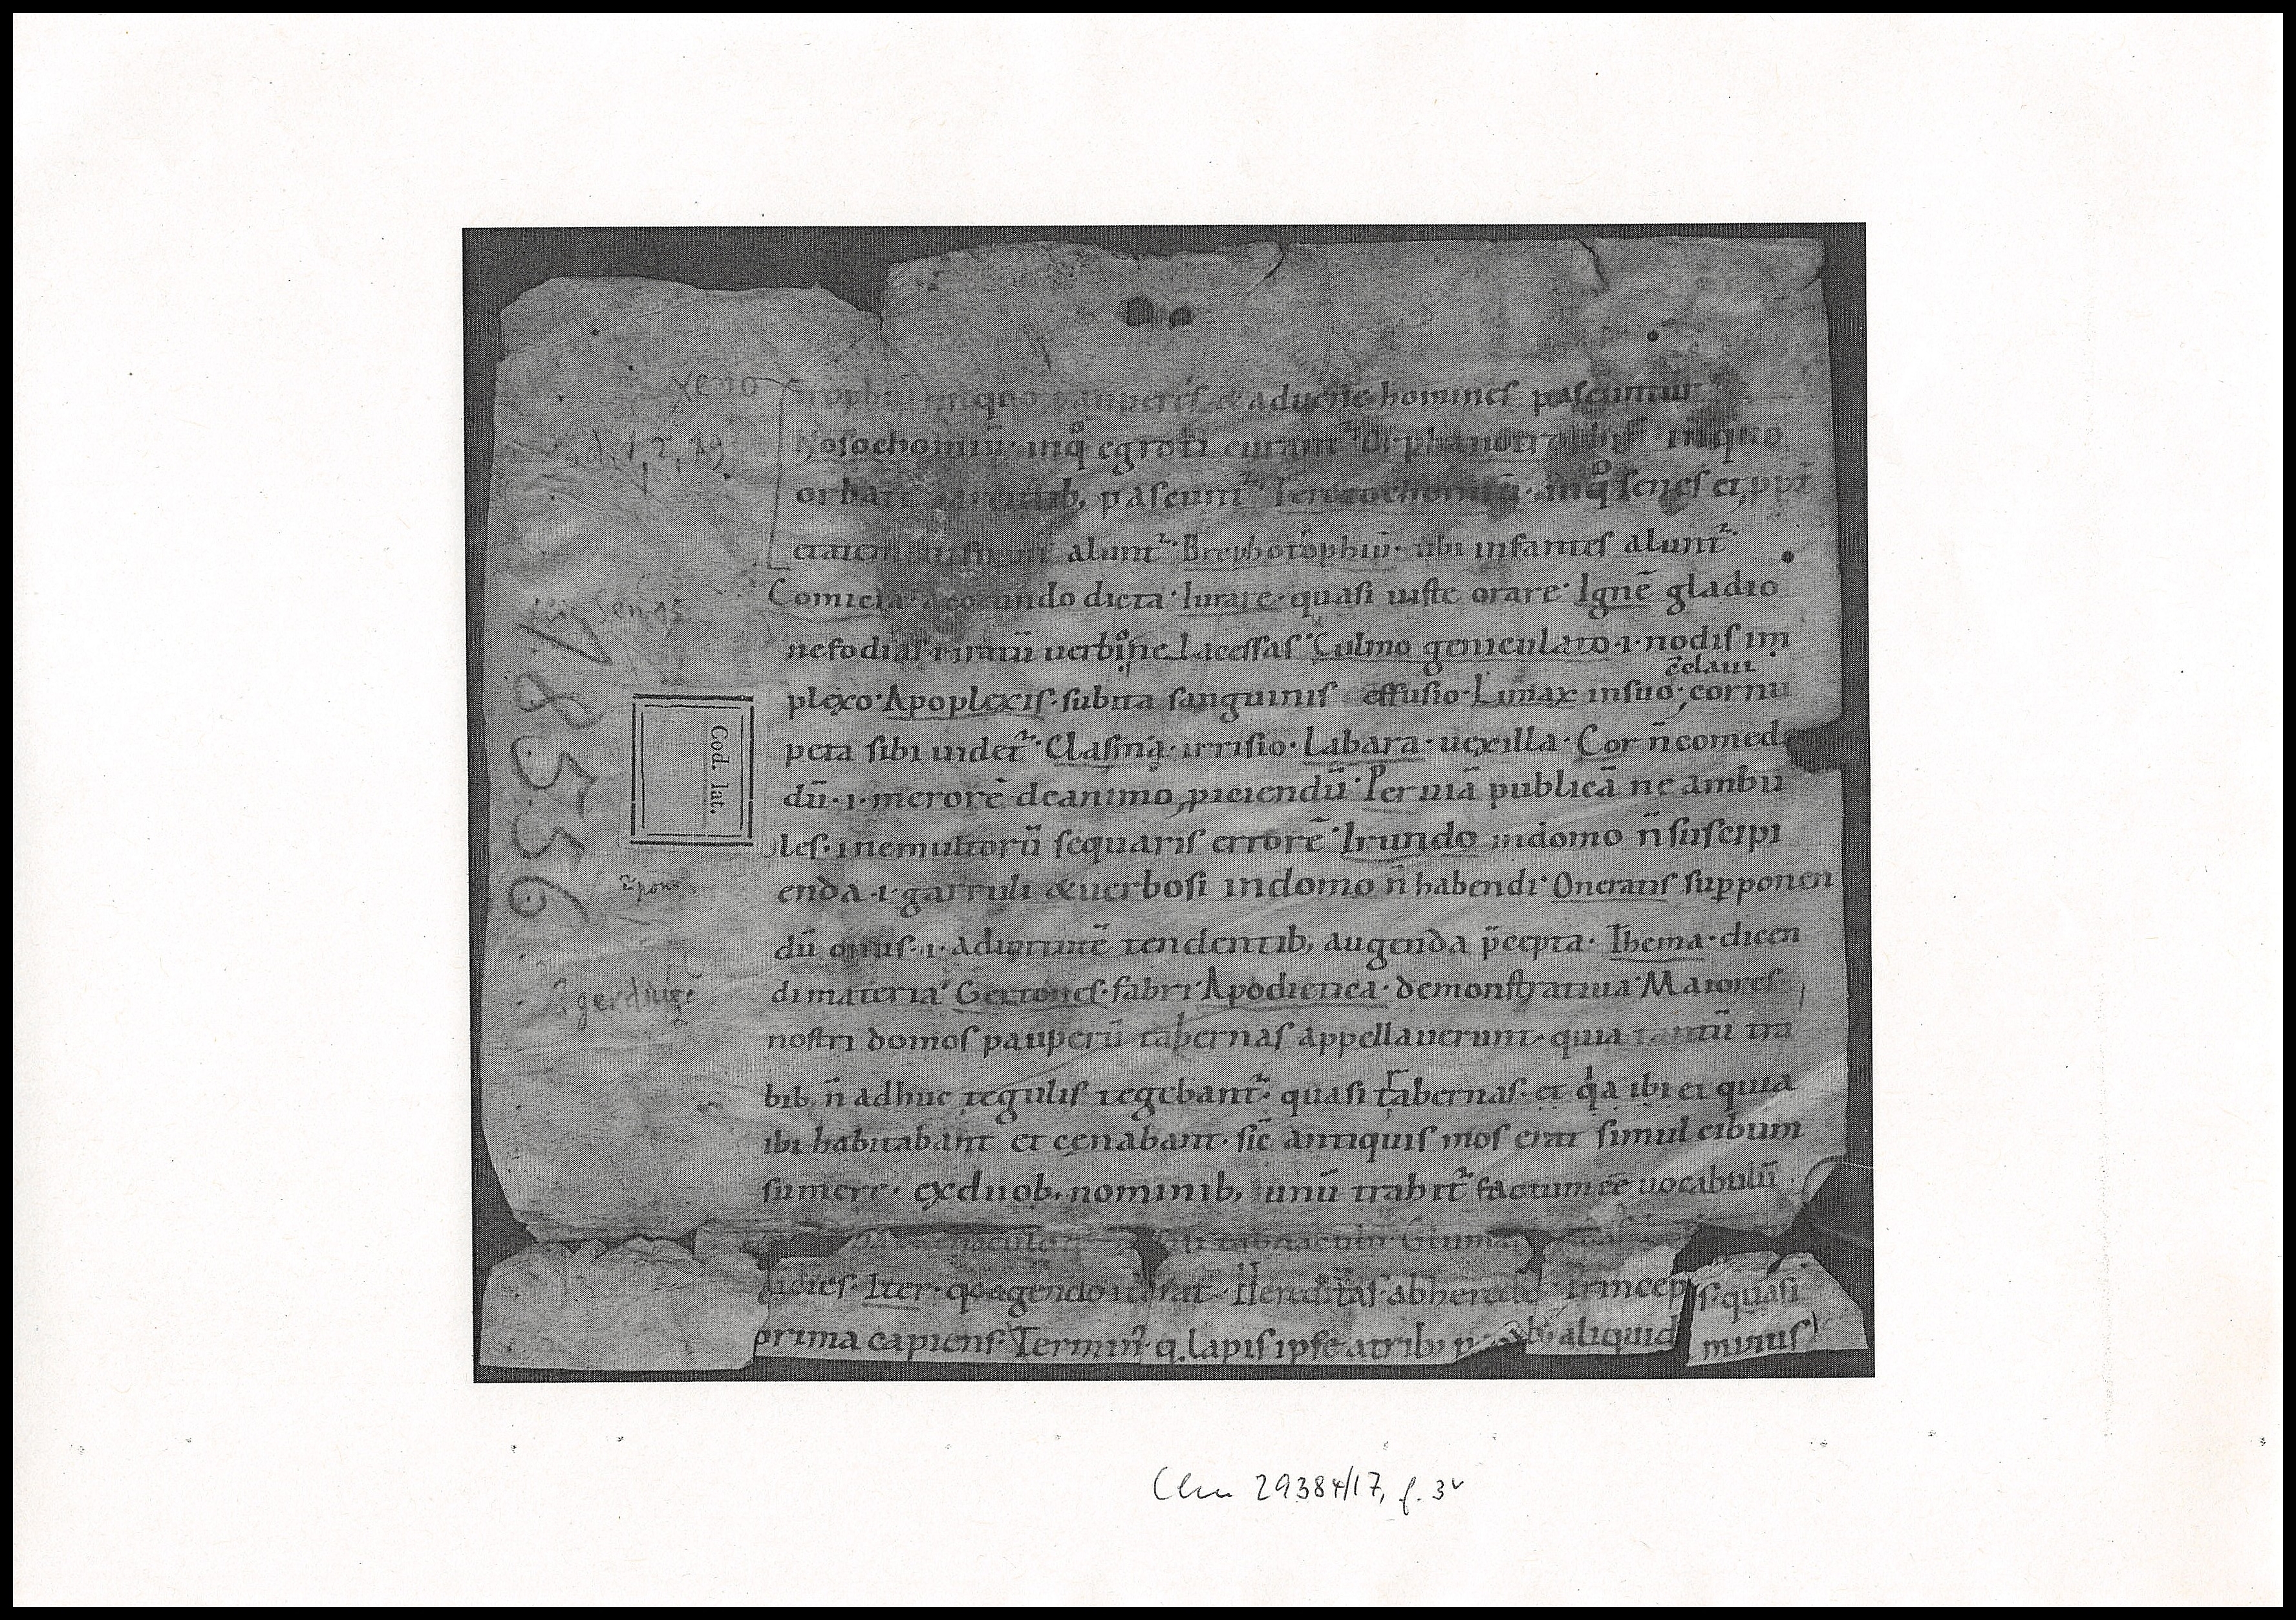 xeno
trophiū inquo pauperes & aduene homines pascuntur
Nosochomiū· inq̊ egroti curant᷑· Orphanotrophiū· inquo
orbati parentib; pascunt᷑· Ierotochomiū· inq̊ senes et
etatem alunt᷑· Brephotophiū· ubi infantes alunt᷑·
Comicia· acoeundo dicta· Iurare· quasi iuste orare· Ignē gladio
nefodias·i·iratū uerbis ne lacessas· Culmo geniculato·i·nodis im
plexo· Apoplexis· subita sanguinis effusio· Limax insuo cornu
c̄claui
peta sibi uidet᷑· Clasma· irrisio· Labara· uexilla· Cor n̄ comede
dū·i·merorē deanimo ꝓiciendū· Per uiā publicā ne ambu
les·inemultorū sequaris errorē· Irundo indomo n̄ suscipi
enda·i·garruli & uerbosi indomo n̄ habendi· Oneratis supponen
dū onus·i·aduirtutē tendentib; augenda p̄cepta· Thema·dicen
di materia· Gertones·fabri· Apodictica·demonstratiua· Maiores
nostri domos pauperū tabernas appellauerunt· quia tantū tra
bib; n̄ adhuc tegulis tegebant᷑· quasi trabernas· et q̇a ibi et quia
ibi habitabant et cenabant· sic̄ antiquis mos erat simul cibum
sumere· exduob; nominib; unū trahit᷑ factum eē uocabulū
Iter· qḋ agendo Hereditas· abherede
prima capiens· Termin᷒· q· lapis ipse aliquid
s· quasi
minus
78556
Cod. lat.
Clm 29384/17, f. 3v